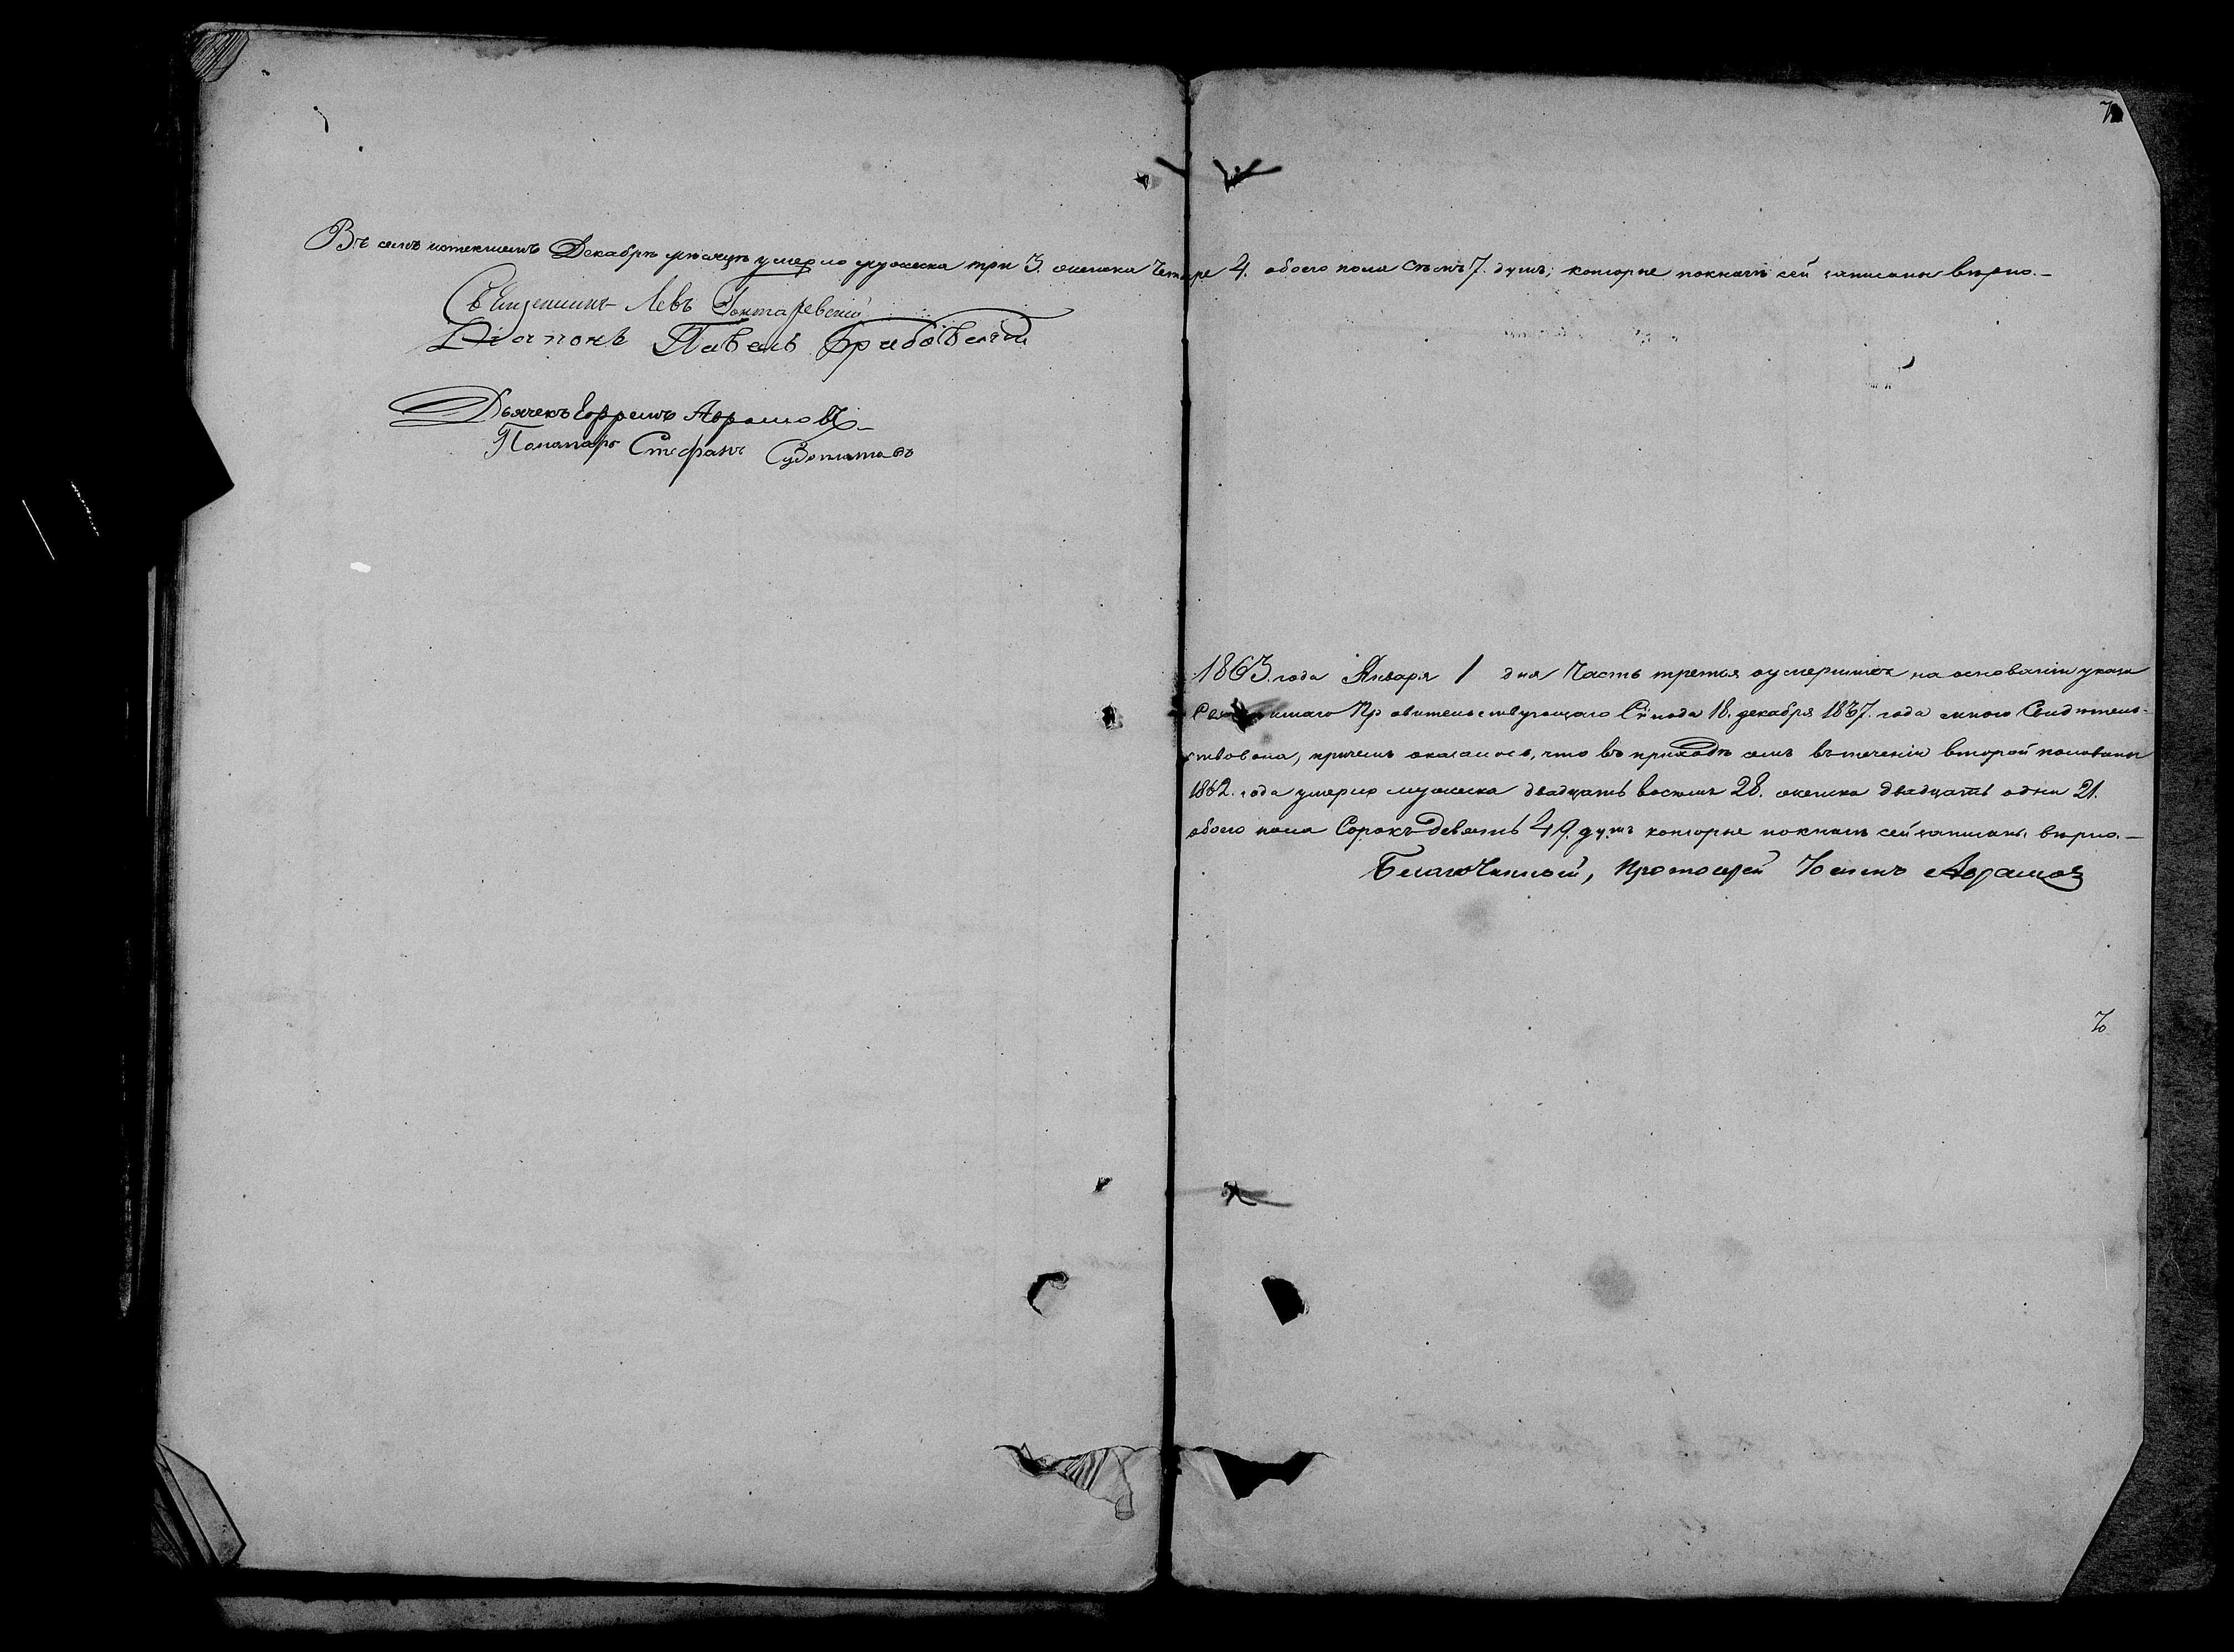 Въ семъ истекшемъ Декабрѣ месяцѣ умерло мужеска три 3. женска четыре 4. обоего пола семъ 7. душъ; которые покнигѣ сей записаны вѣрно.—
Священникъ Левъ Гонтаревскій
Діаконъ Павелъ
Дьячекъ Ефремъ Аврамовъ
Пономарь Стефанъ
1863. года Января 1 дня Часть третья оумершихъ на основаніи указа
Правительствующаго Сѵнода 18. декабря 1837. года мною Свидѣтель-
ствована, причемъ оказалось, что въ приходѣ семъ втеченіи второй половины
1862. года умерло мужеска двадцать восемь 28. женска двадцать одна 21.
обоего пола Сорокъ девять 49. душъ которые покнигѣ сей записаны вѣрно.—
Благочинный, Протоіерей Аврамовъ